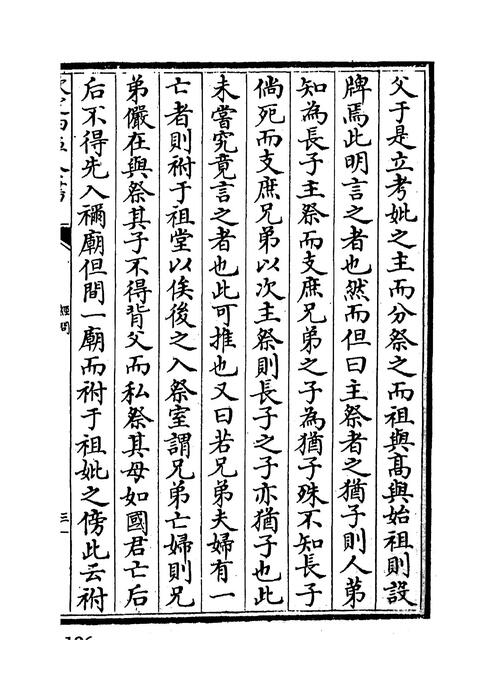 父于是立考妣之主而分祭之而祖與髙與始祖則設
牌焉此明言之者也然而但曰主祭者之猶子則人第
知為長子主祭而支庶兄弟之子為猶子殊不知長子
倘死而支庶兄弟以次主祭則長子之子亦猶子也此
未嘗究竟言之者也此可推也又曰若兄弟夫婦有一
亡者則祔于祖堂以俟後之入祭室謂兄弟亡婦則兄
弟儼在與祭其子不得背父而私祭其母如國君亡后
后不得先入禰廟但間一廟而祔于祖妣之傍此云祔
經問